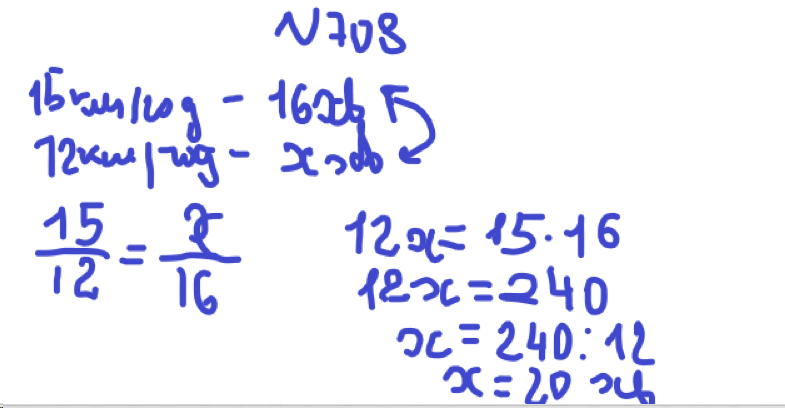 N708
15 км/год - 16 хв
12 км/год - x хв
15/12 = x/16
12x = 15 · 16
12x = 240
x = 240 : 12
x = 20 хв